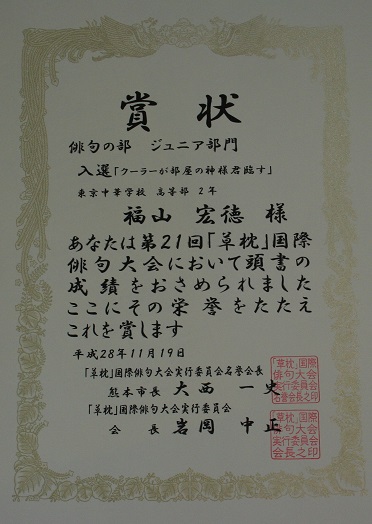 賞状
俳句の部 ジュニア部門
入選「クーラーが部屋の神様君臨す」
東京中華学校 高等部 2年
福山 宏徳 様
あなたは第21回「草枕」国際
俳句大会において頭書の
成績をおさめられました
ここにその栄誉をたたえ
これを賞します
平成28年11月19日
「草枕」国際俳句大会実行委員会名誉会長
熊本市長 大西 一史
「草枕」国際俳句大会実行委員会
会長 岩岡 中正
「草枕」国際
俳句大会
実行委員会
名誉会長之印
「草枕」国際
俳句大会
実行委員会
会長之印